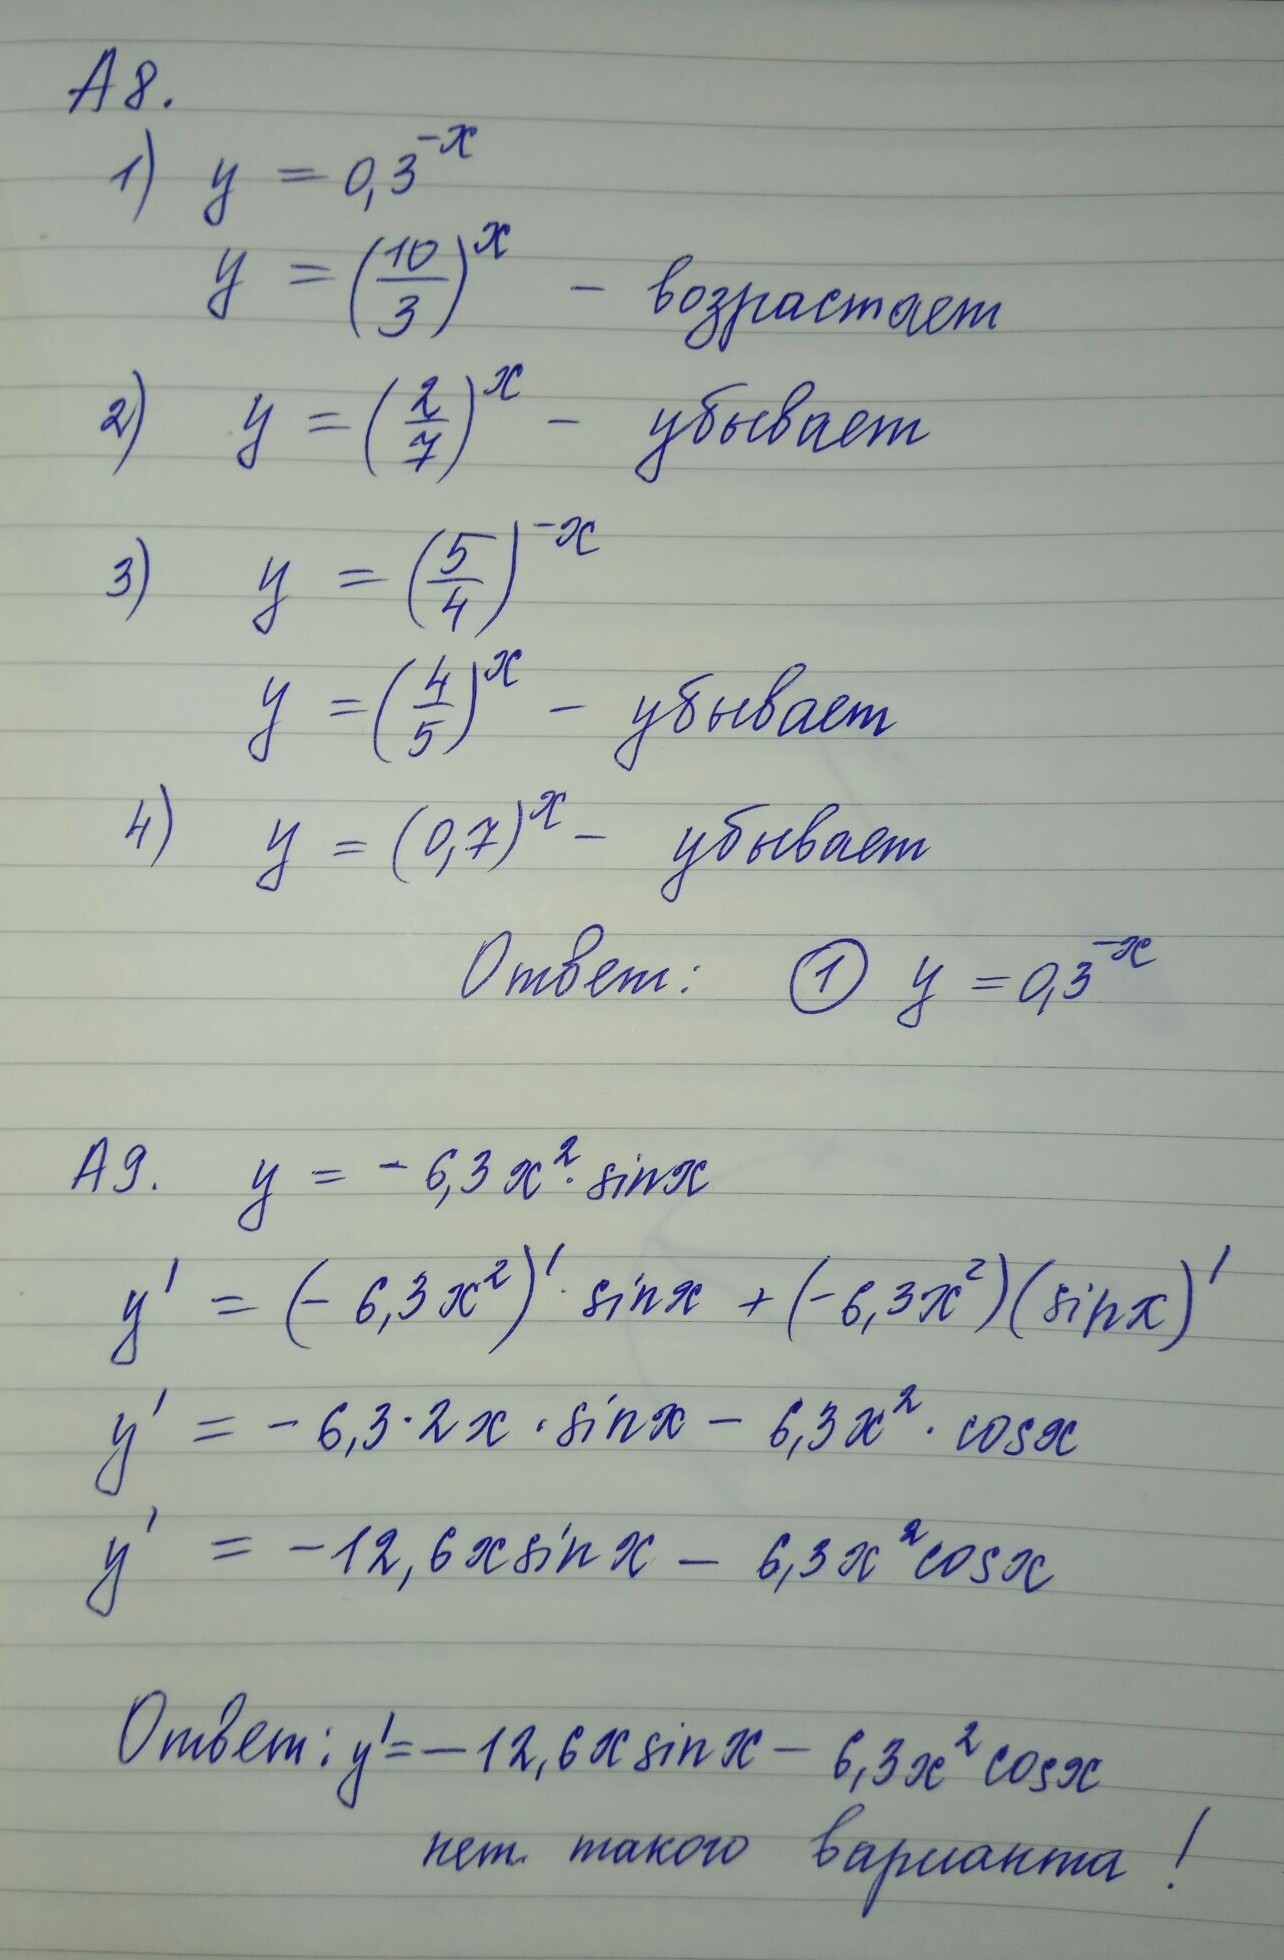 А8.
1) y = 0,3^{-x}
y = (10/3)^x - возрастает
2) y = (2/7)^x - убывает
3) y = (5/4)^{-x}
y = (4/5)^x - убывает
4) y = (0,7)^x - убывает
Ответ: ① y = 0,3^{-x}
А9. y = -6,3x²·sinx
y' = (-6,3x²)'·sinx + (-6,3x²)(sinx)'
y' = -6,3·2x·sinx - 6,3x²·cosx
y' = -12,6xsinx - 6,3x²cosx
Ответ: y'=-12,6xsinx - 6,3x²cosx
нет такого варианта!